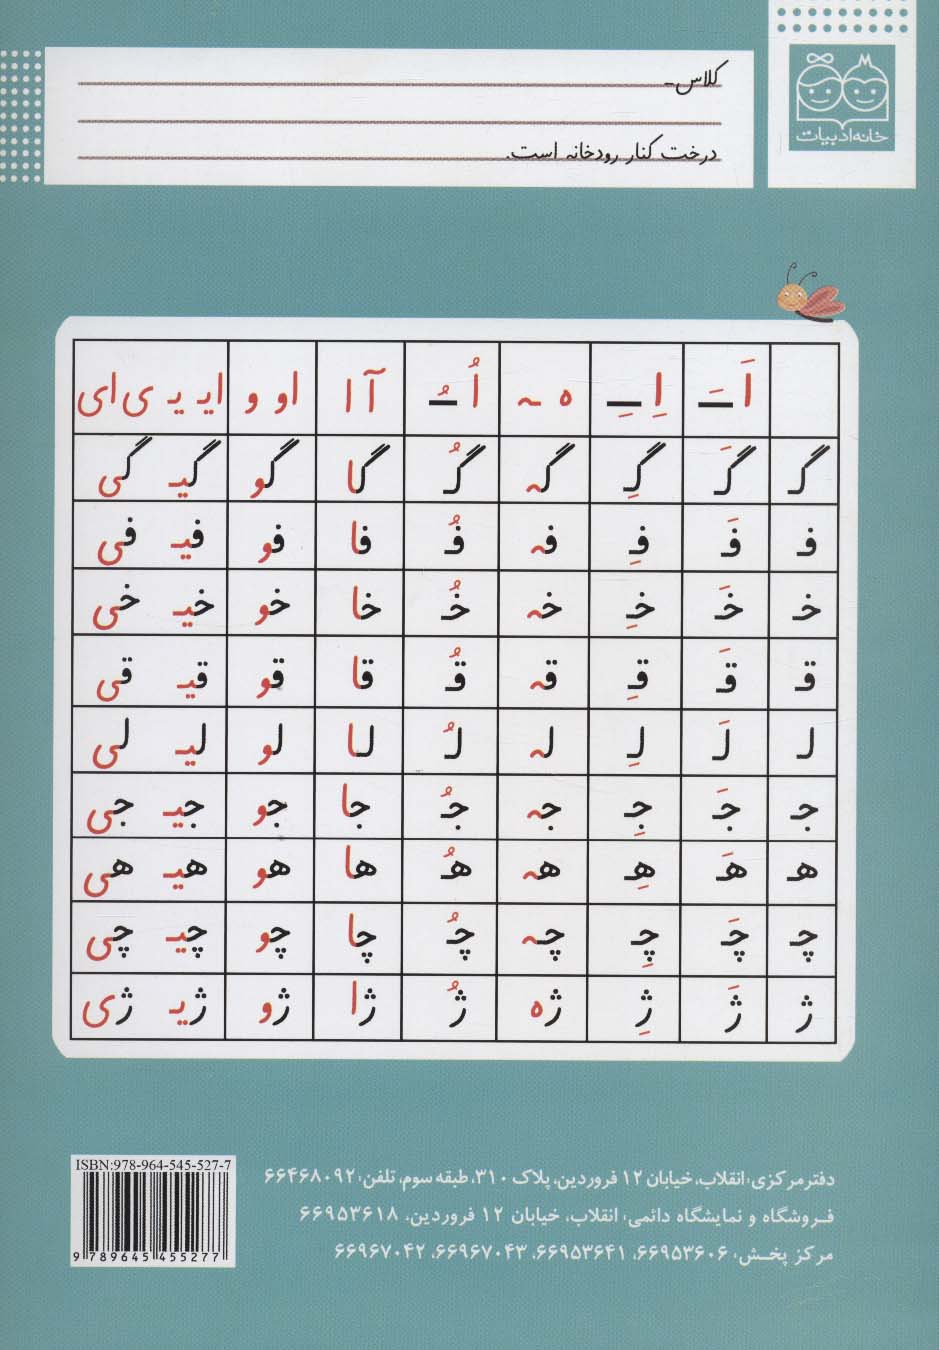 خانه ادبیات
کلاس
درخت کنار رودخانه است.
اَ ـَ اِ ـِ ه ـه اُ ـُ آ ا او و ایـ یـ ی ای
گـ گَـ گِـ گه گُـ گا گو گیـ گی
فـ فَـ فِـ فه فُـ فا فو فیـ فی
خـ خَـ خِـ خه خُـ خا خو خیـ خی
قـ قَـ قِـ قه قُـ قا قو قیـ قی
لـ لَـ لِـ له لُـ لا لو لیـ لی
جـ جَـ جِـ جه جُـ جا جو جیـ جی
هـ هَـ هِـ هه هُـ ها هو هیـ هی
چـ چَـ چِـ چه چُـ چا چو چیـ چی
ژ ژَ ژِ ژه ژُ ژا ژو ژیـ ژی
دفتر مرکزی: انقلاب، خیابان ۱۲ فروردین، پلاک ۳۱۰، طبقه سوم، تلفن: ۶۶۴۶۸۰۹۲
فروشگاه و نمایشگاه دائمی: انقلاب، خیابان ۱۲ فروردین، ۶۶۹۵۳۶۱۸
مرکز پخش: ۶۶۹۵۳۶۰۶، ۶۶۹۵۳۶۴۱، ۶۶۹۶۷۰۴۳، ۶۶۹۶۷۰۴۲
ISBN:978-964-545-527-7
9 789645 455277